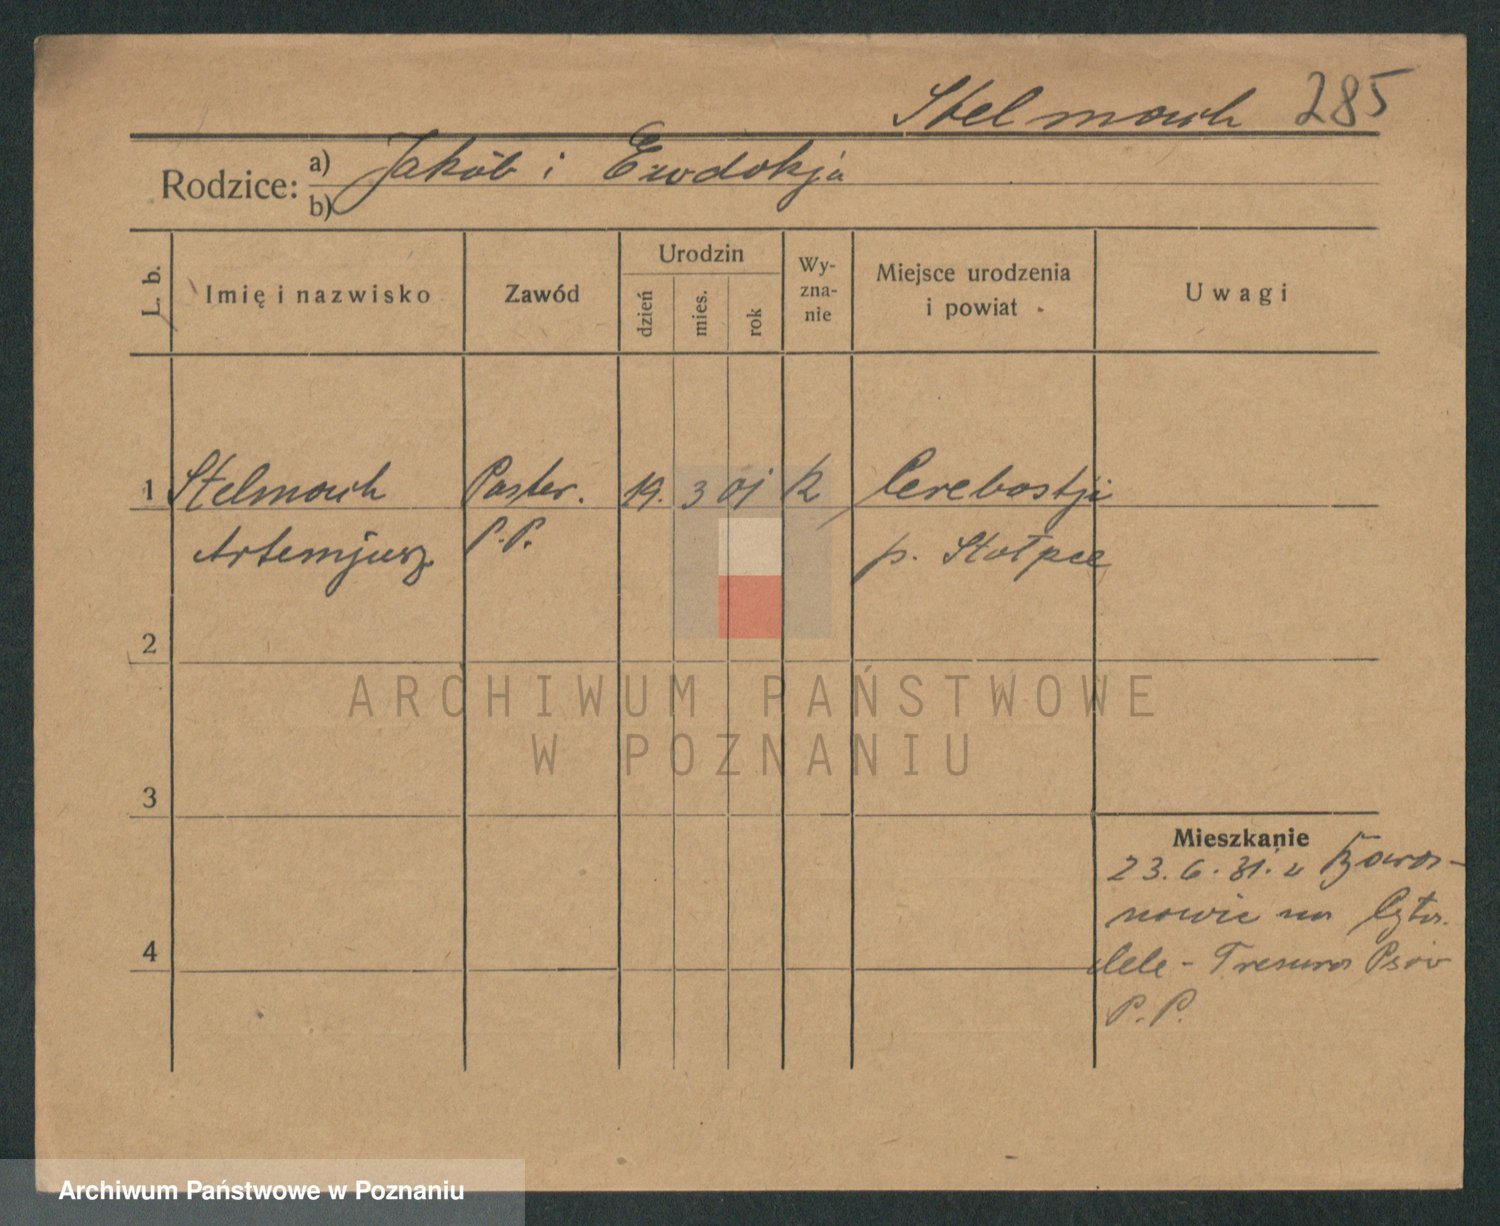 Stelmach 285
Rodzice: a) Jakób i Ewdokja
b)
L. b. Imię i nazwisko Zawód Urodzin dzień mies. rok Wy-zna-nie Miejsce urodzenia i powiat Uwagi
1 Stelmach Poster. 19. 3 01 k
Artemjusz P.P. p. Stołpce
2
3
4
Mieszkanie
23.6.31. u
na Cyta-
deli - Tresura Psów
P.P.
ARCHIWUM PAŃSTWOWE
W POZNANIU
Archiwum Państwowe w Poznaniu